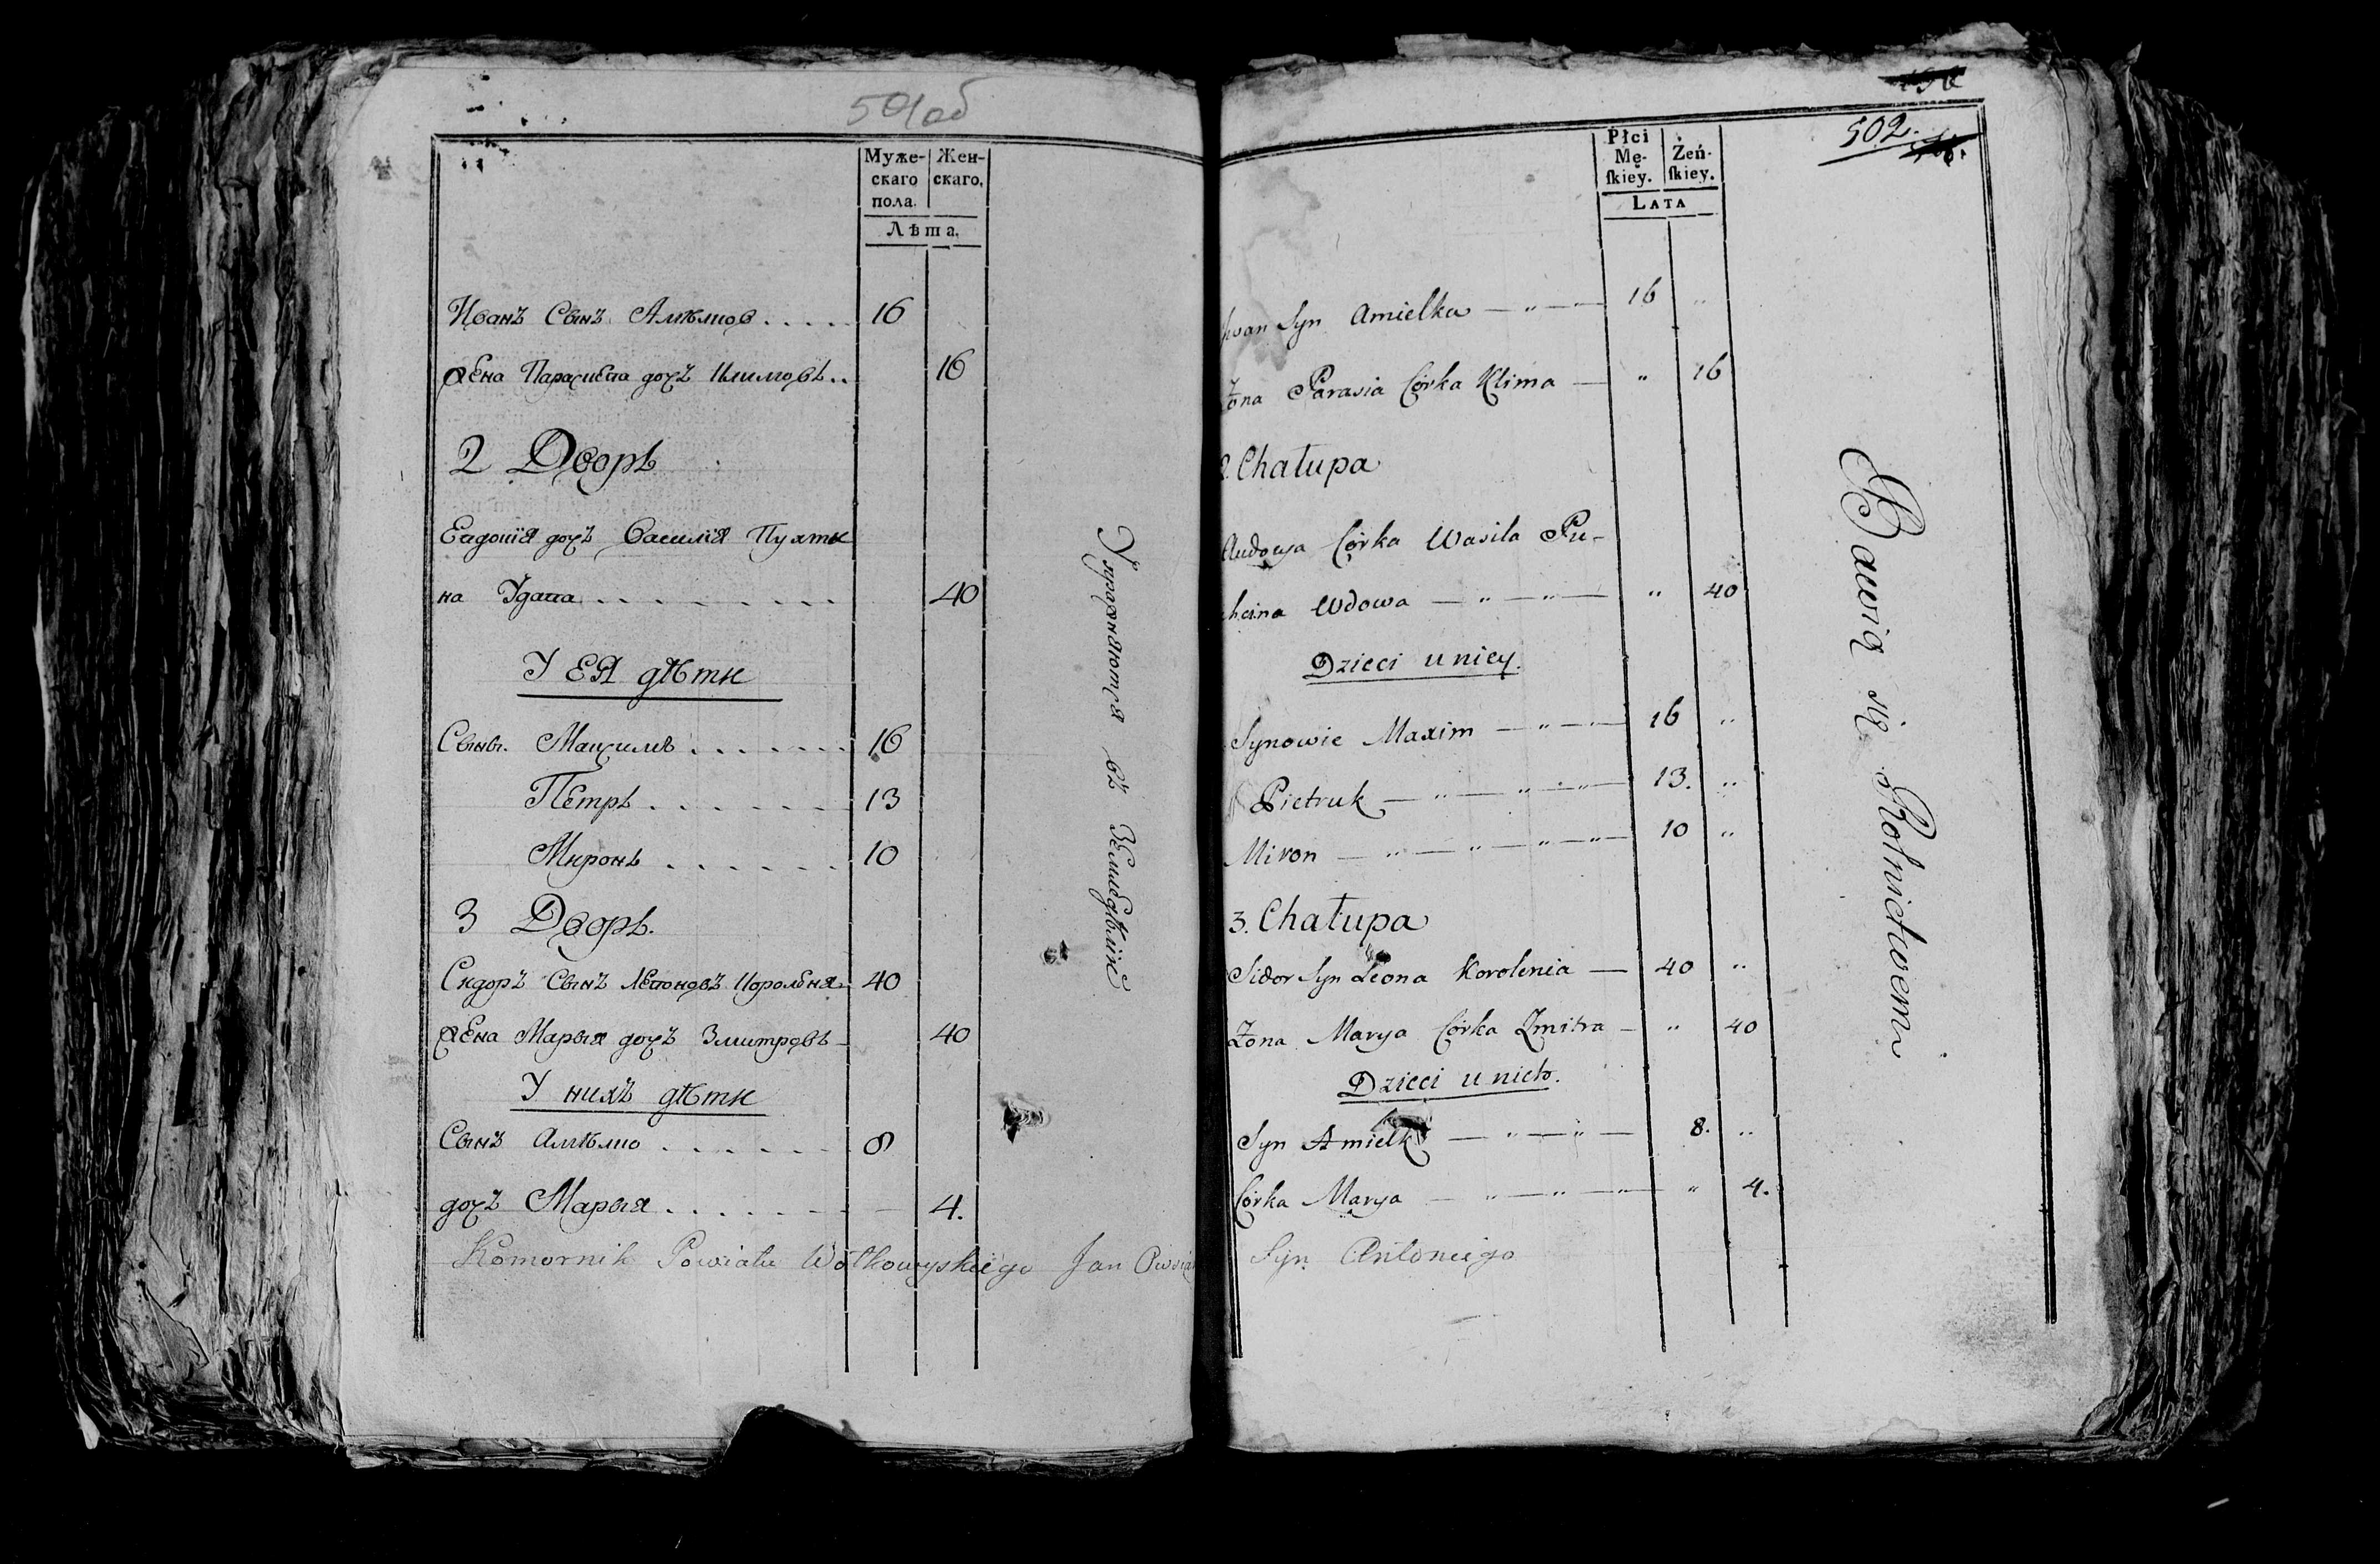 501об
Муже-
скаго
пола.
Жен-
скаго.
Лѣта.
Иванъ Сынъ Амѣлков . . . . . 16
жена Параскева дочъ Климовъ . . 16
2 Дворъ
Евдокія дочъ Василія Пухти
на Удава . . . . . . . . . 40
У ЕЯ дѣти
Сыны. Максимъ . . . . . . 16
Петръ . . . . . . 13
Миронъ . . . . . . 10
3 Дворъ.
Сидоръ Сынъ Леоновъ Короленя 40
жена Марыя дочъ Змитровъ 40
У нихъ дѣти
Сынъ Амѣлко . . . . . . 8
дочъ Марыя . . . . . . 4.
Упражняются въ Земледѣліи
Komornik Powiatu Wołkowyskiego Jan
Syn Antoniego
502.
Płci
Mę-
ſkiey.
Żeń-
ſkiey.
LATA
Iwan Syn Amielka 16 "
Żona Parasia Córka Klima " 16
2. Chałupa
Audocya Córka Wasila Pu-
chcina Wdowa " 40
Dzieci u niey.
Synowie Maxim 16 "
Pietruk 13. "
Miron 10 "
3. Chałupa
Sidor Syn Leona Korolenia 40 "
Żona Marya Córka Zmitra " 40
Dzieci u nich.
Syn Amielk 8. "
Córka Marya " 4.
Bawią się Rolnictwem